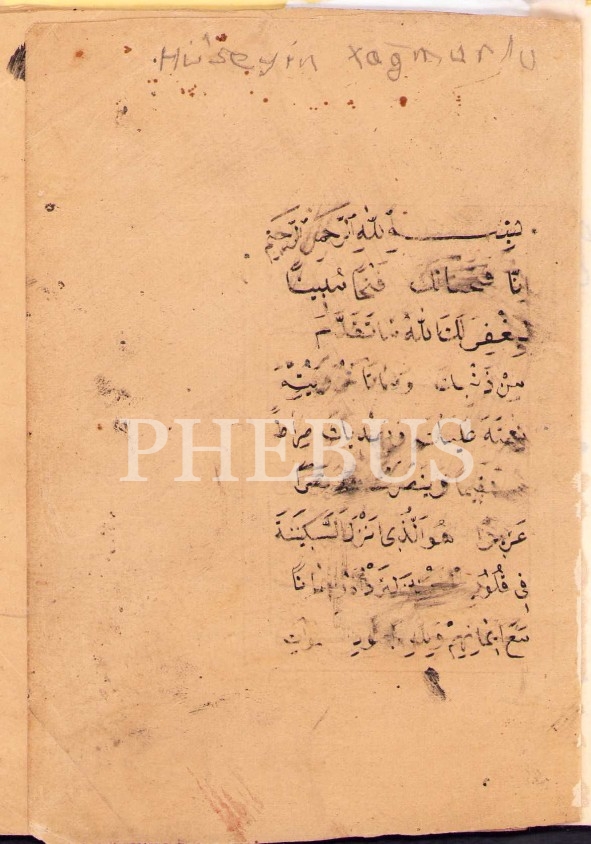 Hüseyin Yağmurlu
بسم الله الرحمن الرحيم
انا فتحنا لك فتحا مبينا
ليغفر لك الله ما تقدم
من ذنبك وما تأخر ويتم
نعمته عليك ويهديك صراطا
مستقيما وينصرك
عزيزا هو الذي انزل السكينة
في قلوب
مع ايمانهم ولله
PHEBUS